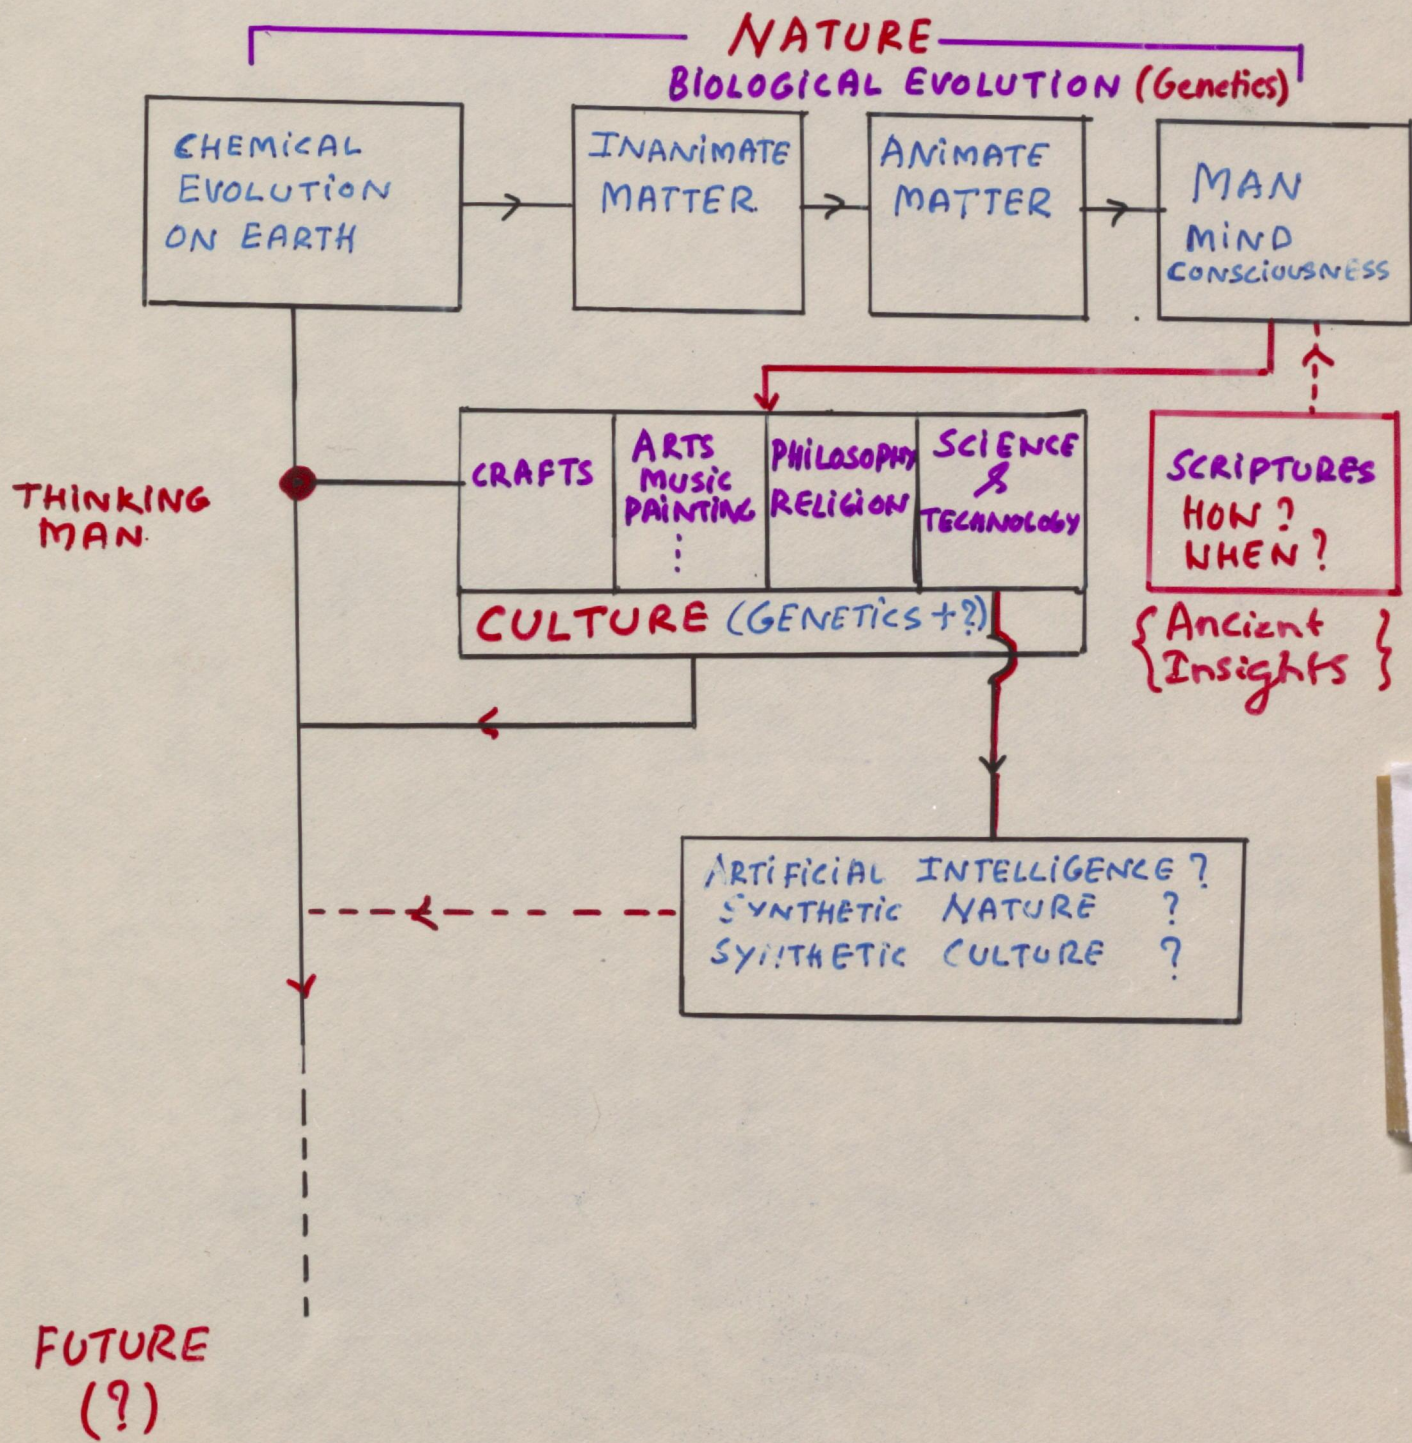 NATURE
BIOLOGICAL EVOLUTION (Genetics)
CHEMICAL
EVOLUTION
ON EARTH
INANIMATE
MATTER
ANIMATE
MATTER
MAN
MIND
CONSCIOUSNESS
THINKING
MAN
CRAFTS
ARTS
MUSIC
PAINTING
PHILOSOPHY
RELIGION
SCIENCE
&
TECHNOLOGY
CULTURE (GENETICS + ?)
SCRIPTURES
HOW ?
WHEN ?
{Ancient
Insights}
ARTIFICIAL INTELLIGENCE ?
SYNTHETIC NATURE ?
SYNTHETIC CULTURE ?
FUTURE
(?)